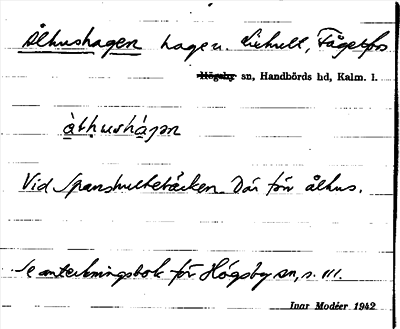 Ålhushagen hage u. Liehult, Fågelfors
Högsby sn, Handbörds hd, Kalm. l.
ålhushagen
Vid Spanshultebäcken. Där förr ålhus.
Se anteckningsbok för Högsby sn, s. 111.
Ivar Modéer 1942